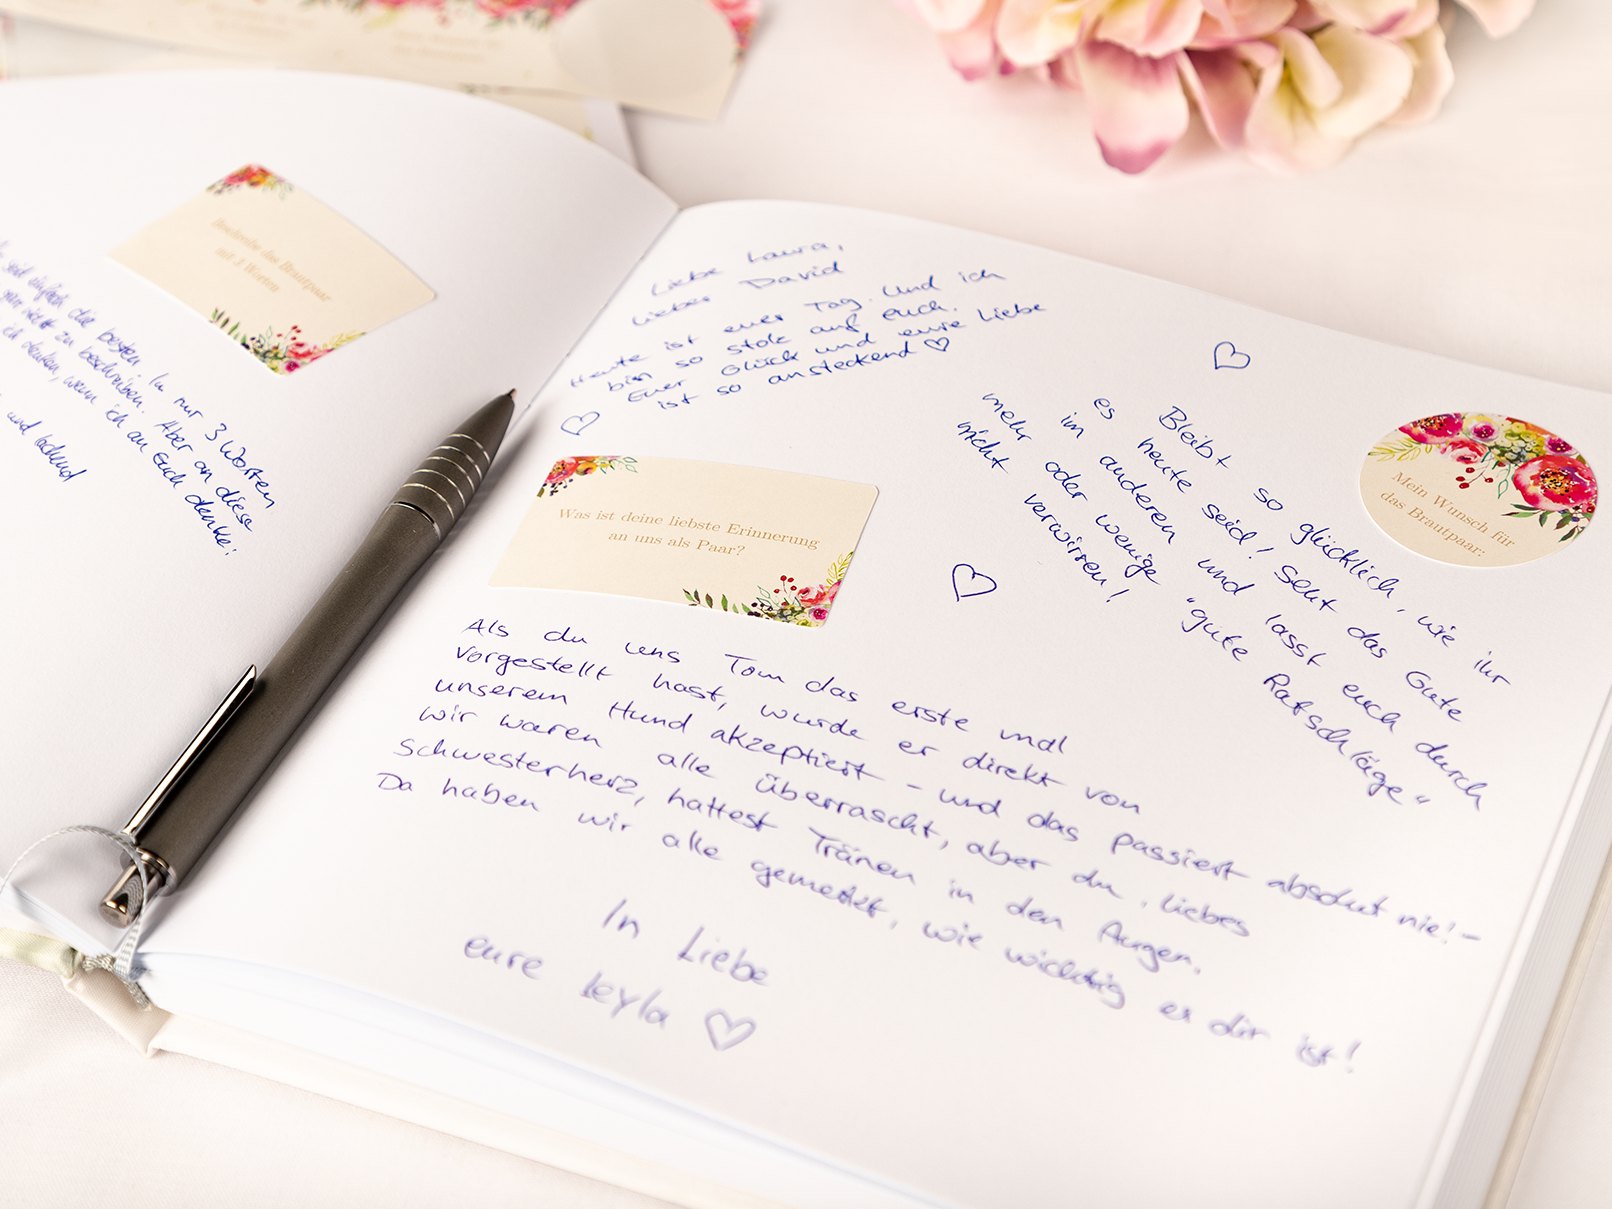 Beschreibe das Brautpaar
mit 3 Worten
seid einfach die besten. In nur 3 Worten
gar nicht zu beschreiben. Aber an diese
ich denken, wenn ich an Euch denke:
und
Liebe Laura,
Lieber David
Heute ist euer Tag. Und ich
bin so stolz auf euch.
Euer Glück und eure Liebe
ist so ansteckend ♡
♡
Was ist deine liebste Erinnerung
an uns als Paar?
Als du uns Tom das erste mal
vorgestellt hast, wurde er direkt von
unserem Hund akzeptiert - und das passiert absolut nie! -
wir waren alle überrascht, aber du, liebes
Schwesterherz, hattest Tränen in den Augen.
Da haben wir alle gemerkt, wie wichtig er dir ist!
In Liebe
eure Leyla ♡
♡
Mein Wunsch für
das Brautpaar:
Bleibt so glücklich, wie ihr
es heute seid! Seht das Gute
im anderen und lasst euch durch
mehr oder wenige "gute Ratschläge"
nicht verwirren!
♡